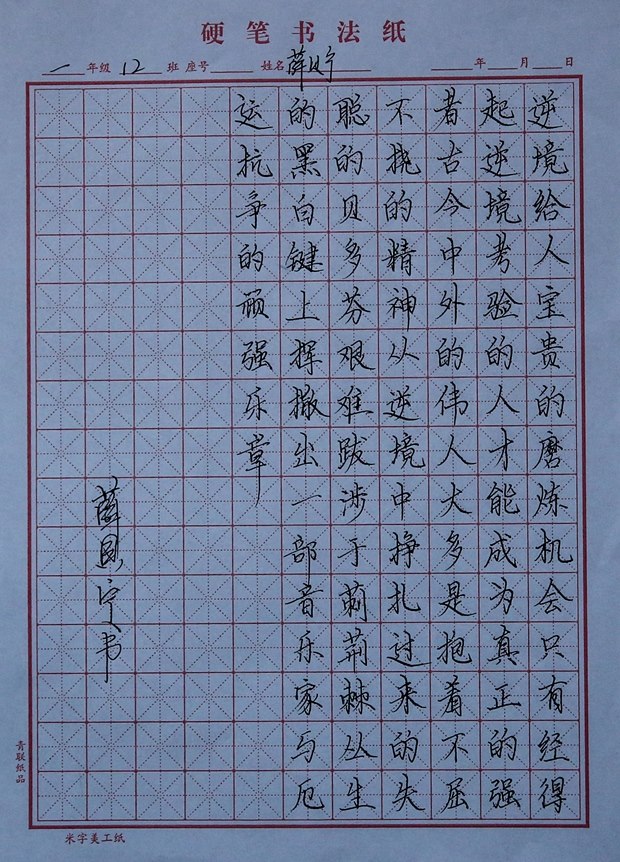 硬笔书法纸
一 年级 12 班 座号 姓名 薛 年 月 日
逆境给人宝贵的磨炼机会只有经得
起逆境考验的人才能成为真正的强
者古今中外的伟人大多是抱着不屈
不挠的精神从逆境中挣扎过来的失
聪的贝多芬艰难跋涉于荆棘丛生
的黑白键上挥撒出一部音乐家与厄
运抗争的顽强乐章
薛宁书
青联纸品
米字美工纸